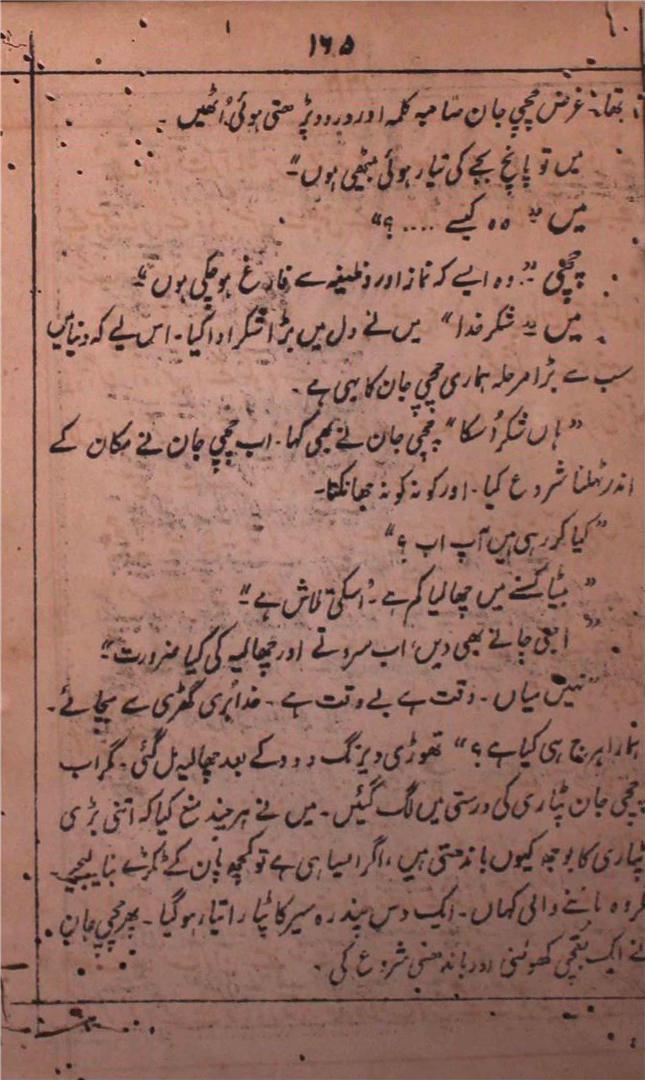 ۱۶۵
تھا۔ غرض چچی جان صاحبہ کلمہ اور درود پڑھتی ہوئی اُٹھیں۔
میں تو پانچ بجے کی تیار ہوئی بیٹھی ہوں"
میں " وہ کیسے ....؟"
چچی "۔ وہ ایسے کہ نماز اور وظیفہ سے فارغ ہو چکی ہوں"
میں " شکر خدا" میں نے دل میں بڑا شکر ادا کیا۔ اس لیے کہ دنیا میں
سب سے بڑا مرحلہ ہماری چچی جان کا یہی ہے۔
"ہاں شکر اُسکا" چچی جان نے بھی کہا۔ اب چچی جان نے مکان کے
اندر ٹہلنا شروع کیا۔ اور کونہ کونہ جھانکتا۔
"کیا کر رہی ہیں آپ اب ؟"
"بیٹا کسنے میں چھالیا کم ہے۔ اُسکی تلاش ہے"
"ابھی جانے بھی دیں، اب سروتے اور چھالیہ کی کیا ضرورت"
"نہیں میاں۔ وقت ہے بے وقت ہے۔ خدا بُری گھڑی سے بچائے۔
ہمارا ہرج ہی کیا ہے ؟" تھوڑی دیر تگ و دو کے بعد چھالیہ مل گئی۔ مگر اب
چچی جان پٹاری کی درستی میں لگ گئیں۔ میں نے ہر چند منع کیا کہ اتنی بڑی
پٹاری کا بوجھ کیوں باندھتی ہیں، اگر ایسا ہی ہے تو کچھ پان کے ٹکڑے بنا لیجیے
مگر وہ ماننے والی کہاں۔ ایک دس پندرہ سیر کا پٹارا تیار ہو گیا۔ پھر چچی جان
نے ایک بقچی کھولنی اور باندھنی شروع کی۔